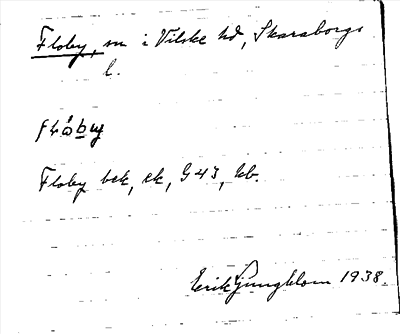 Floby, sn i Vilske hd, Skaraborgs
l.
Floby bck, ek, G43, kb.
Erik Ljungblom 1938.